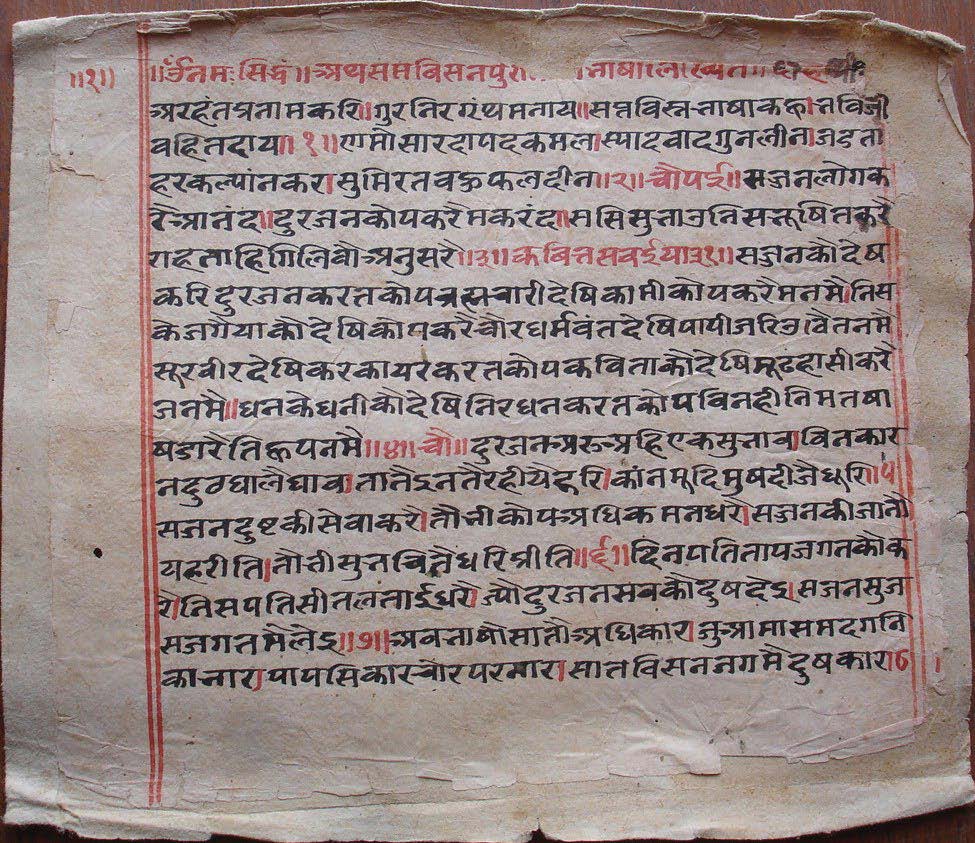 ॥१॥ ॥ॐनमःसिद्धं॥अथसप्तविसनपुरा भाषालिख्यते॥
अरहंतप्रनामकरि॥गुरनिरग्रंथमनाय॥सप्तविस्नभाषाकहूं।भविजी
वहितदाय॥१॥णमौसारदापदकमल।स्यादवादगुनलीन।जडता
हरकल्यांनकर।सुमिरतबहुफलदीन॥२॥चौपई॥सज्जनलोगक
रैआनंद॥दुरजनकोपकरैमकरंद॥ससिसुभाउनिसभूषितकरै
राहताहिगिलिवौअनुसरै॥३॥कवित्तसवईया३१॥सज्जनकौदेष
करिदुरजनकरतकोपब्रह्मचारीदेषिकामीकोपकरैमनमै।निस
केजगैयाकौदेषिकोपकरैचोरधर्मवंतदेषिपापीजरिउठैतनमै
सूरवीरदेषिकरकायरकरतकोपकविताकौदेषिमूढहासीकरै
जनमै॥धनकेधनीकौदेषिनिरधनकरतकोपविनहीनिमतषा
षडारैतिहूपनमै॥४॥चौ॥दुरजनअरुअहिएकसुभाव।विनकार
नदुठघालैघाव।तातैइनतैरहीयैदूरि।कांनमूदिमुषदीजैधूरि।५
सज्जनदुष्टकीसेवाकरै।तौभीकोपअधिकमनधरै।सज्जनकीजातौ
यहरीति।तौभीसुभचितैधरिप्रीति॥६॥दिनपतितापजगतकौक
रै।निसपतिसीतलताईधरै।ज्यौदुरजनसबकौदुषदेइ।सज्जनसुज
सजगतमैलेइ॥७॥अबभाषौसातौअधिकार।जुआमासमदगनि
काभार।पापसिकारचोरपरनार।सातविसनजगमैदुषकार।८